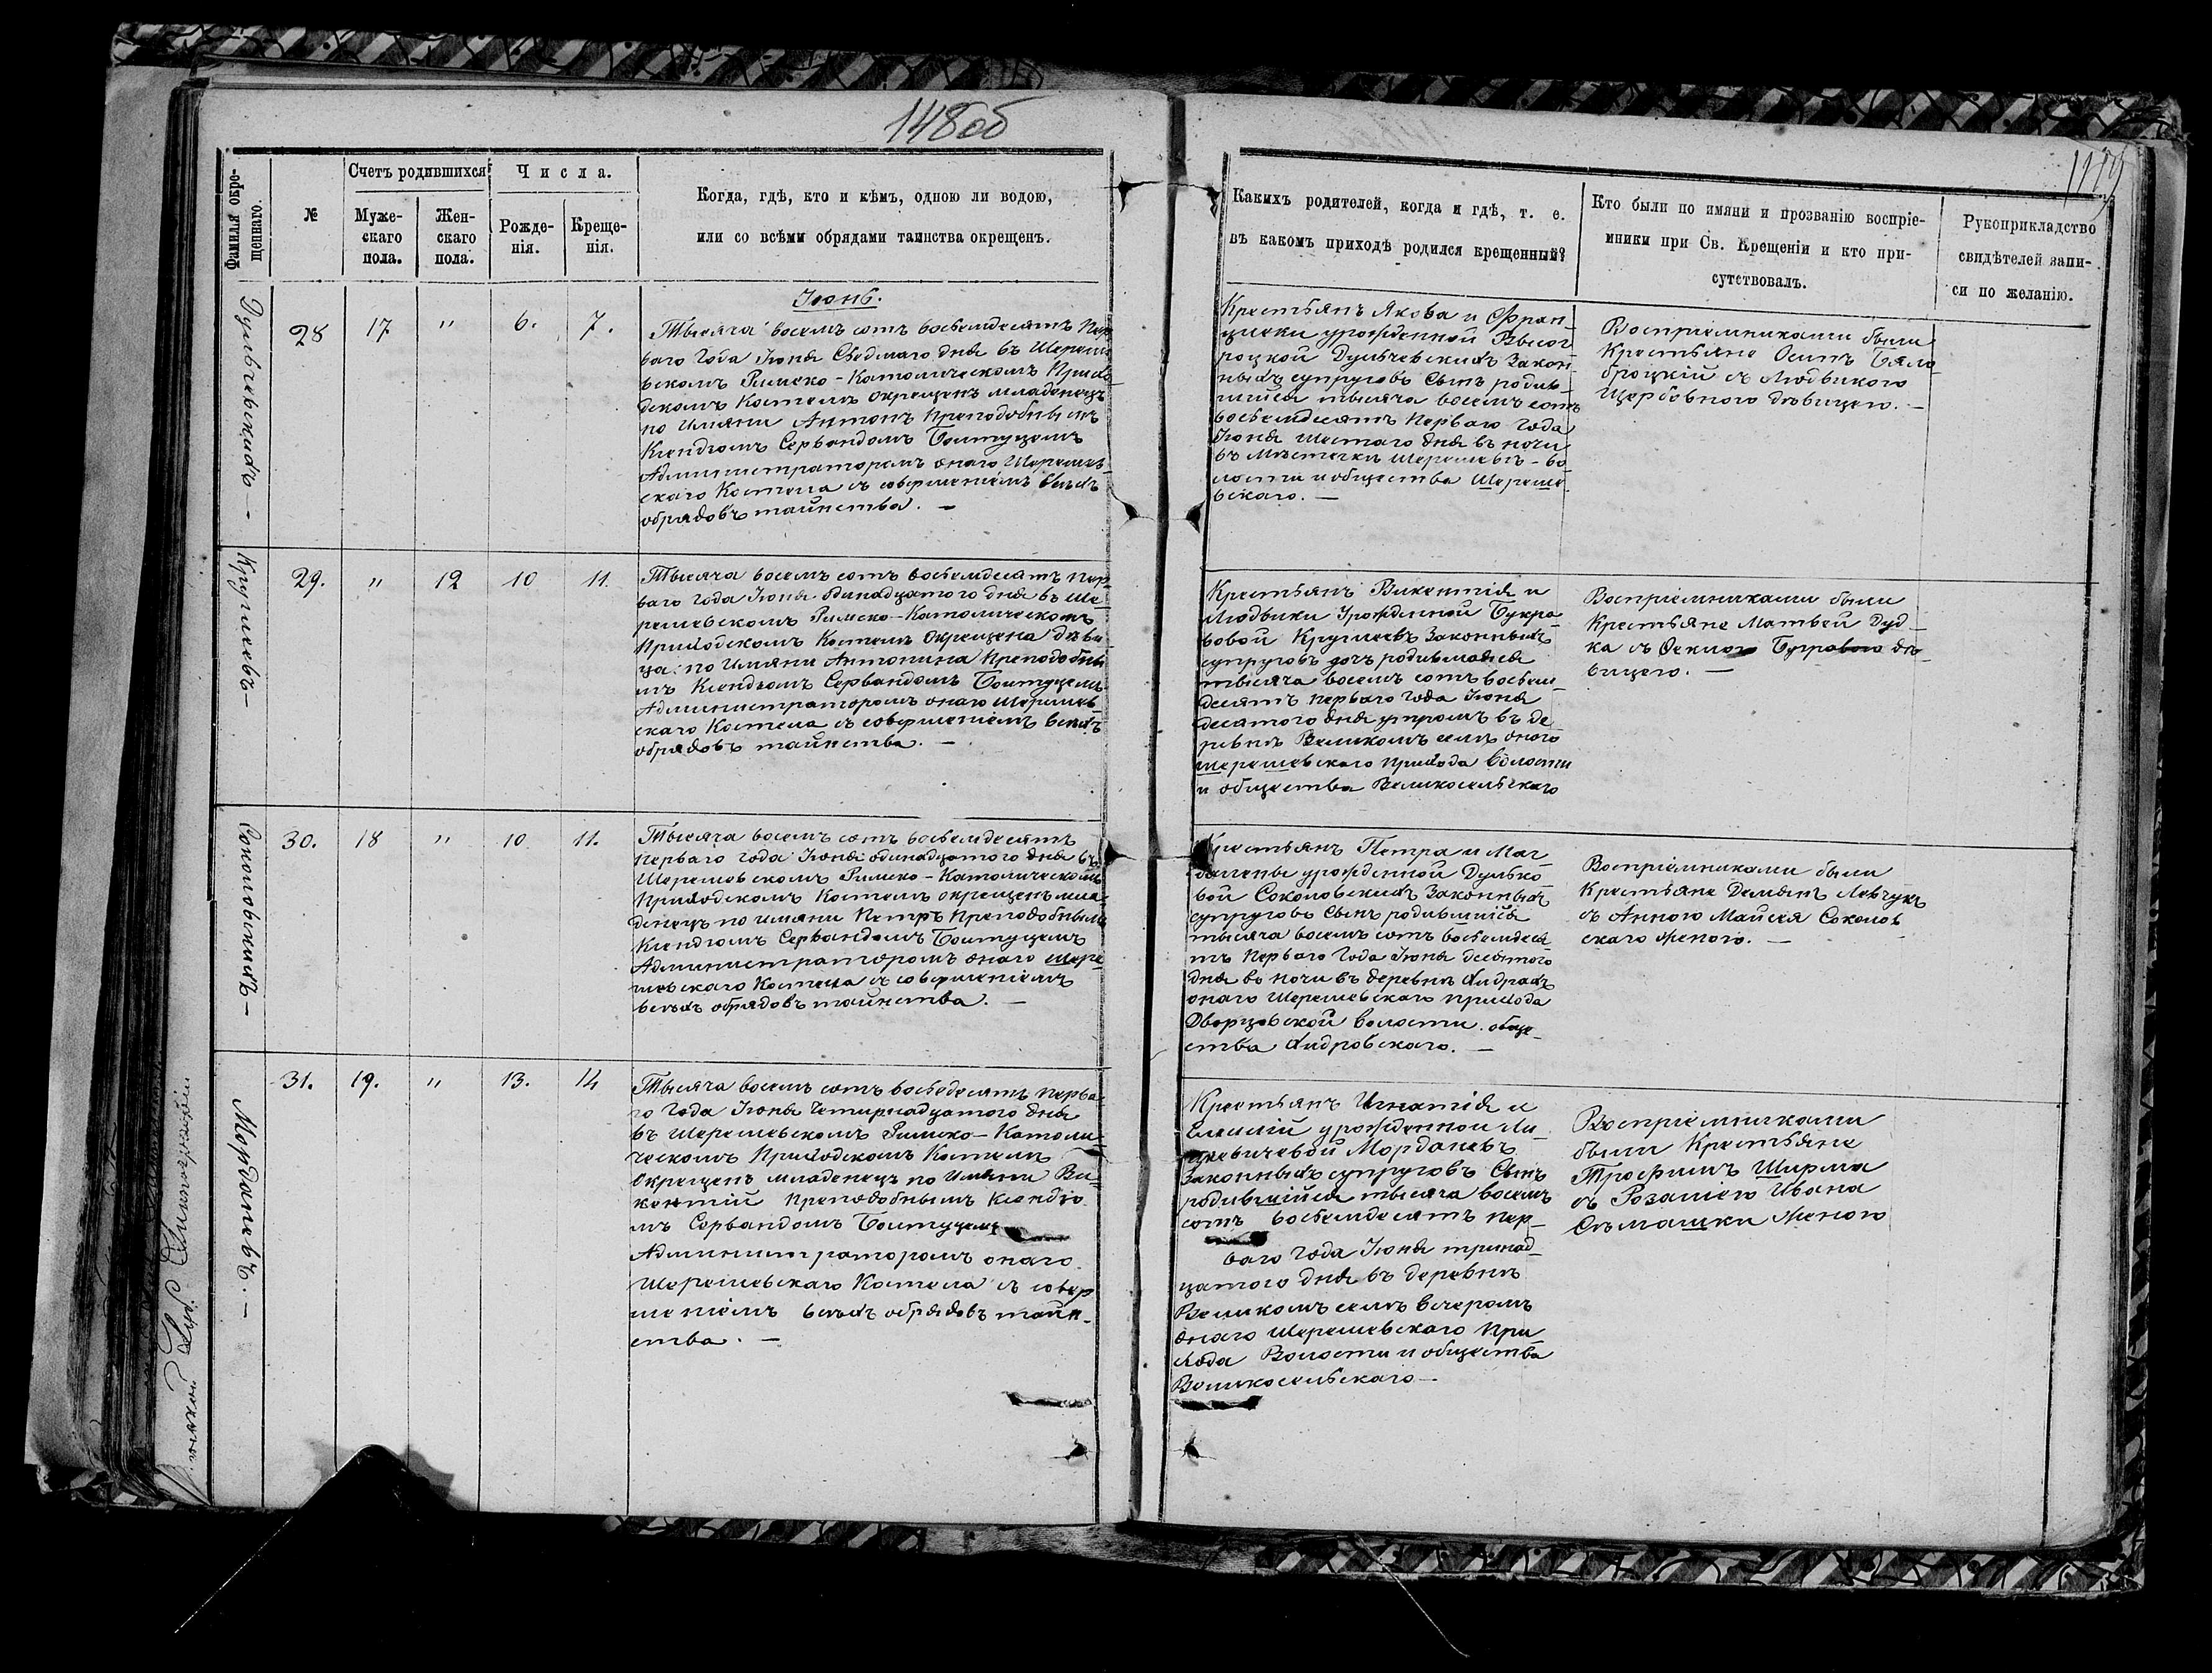 148об
149
Фамилія окре-
щеннаго.
№
Счетъ родившихся
Муже-
скаго
пола.
Жен-
скаго
пола.
Числа.
Рожде-
нія.
Креще-
нія.
Когда, гдѣ, кто и кѣмъ, одною ли водою,
или со всѣми обрядами таинства окрещенъ.
Каких​ъ родителей, когда и гдѣ, т. е.
въ какомъ приходѣ родился крещенный?
Кто были по имяни и прозванію воспріе-
мники при Св. Крещеніи и кто при-
сутствовалъ.
Рукоприкладство
свидѣтелей запи-
си по желанію.
Дульчевскихъ –
28
17
"
6.
7.
Іюнь.
Тысяча восемъ сотъ восьемдесятъ Пер
ваго Года Іюня Седмаго дня въ Шереше
вскомъ Римско-Католическомъ Прихо
дскомъ Костелѣ окрещенъ младенецъ
по Имяни Антонъ Преподобнымъ
Ксендзомъ Сервандомъ Боитуцемъ
Администраторомъ онаго Шерешев-
скаго Костела съ совершеніемъ всѣхъ
обрядовъ таинства. –
Крестьянъ Якова и Фран-
циски урожденной Высог
роцкой Дульчевскихъ Закон-
ныхъ супруговъ Сынъ родив
шійся тысяча восемъ сотъ
восьемдесятъ Перваго Года
Іюня Шестаго дня въ ночи
въ Мѣстечкѣ Шерешевѣ - во-
лости и общества Шереше-
вскаго. –
Воспріемниками были
Крестьяне Осипъ Бяло
броцкій съ Людвикою
Щербовною дѣвицею. –
Круглевъ –
29.
"
12
10
11.
Тысяча восемъ сотъ восьемдесятъ пер-
ваго года Іюня одинадцатого дня въ Ше-
решевскомъ Римско-Католическомъ
Приходскомъ Костелѣ Окрещена дѣви
ца: по Имяни Антонина Преподобны
мъ Ксендзомъ Сервандомъ Боитуцемъ
Администраторомъ онаго Шерешев-
скаго Костела съ совершеніемъ всѣхъ
обрядовъ таинства. –
Крестьянъ Викентія и
Людвики Урожденной Букра-
бовой Круглевъ Законныхъ
супруговъ дочъ родившаяся
тысяча восемъ сотъ восьем
десятъ перваго года Іюня
десятого дня утромъ въ де
ревнѣ Великомъ селѣ оного
Шерешевскаго прихода волости
и общества Великосельскаго
Воспріемниками были
Крестьяне Матвей Дуд-
ка съ Феклою дѣ-
вицею. –
Соколовскихъ –
30.
18
"
10
11.
Тысяча восемъ сотъ восьемдесятъ
перваго года Іюня одинадцатого дня въ
Шерешевскомъ Римско-Католическомъ
Приходскомъ Костелѣ окрещенъ мла-
денецъ по имяни Петръ Преподобнымъ
Ксендзомъ Сервандомъ Боитуцемъ
Администраторомъ онаго Шере-
шевскаго Костела съ совершеніемъ
всѣхъ обрядовъ таинства. –
Крестьянъ Петра и Маг
далены урожденной Дулько
вой Соколовскихъ Законныхъ
супруговъ Сынъ родившійся
тысяча восемъ сотъ восьемдеся
тъ Перваго Года Іюня десятого
дня во ночи въ деревнѣ Хидрахъ
онаго Шерешевскаго прихода
Дворцовской волости. обще-
ства Хидровскаго. –
Воспріемниками были
Крестьяне Демьянъ Левчукъ
съ Анною Майсея Соколов
скаго женою. –
Морданевъ. –
31.
19.
"
13.
14
Тысяча восемъ сотъ восьедесятъ перва-
го Года Іюня Четирнадцатого дня
въ Шерешевскомъ Римско-Католи-
ческомъ Приходскомъ Костелѣ
Окрещенъ младенецъ по Имяни Ви-
кентій Преподобнымъ Ксендзо-
мъ Сервандомъ Боитуцемъ
Администраторомъ онаго
Шерешевскаго Костела съ совер
шеніемъ всѣхъ обрядовъ таин-
ства. –
Крестьянъ Игнатія и
урожденной Ли-
Морданевъ
Законныхъ супруговъ Сынъ
родившійся тысяча восемъ
сотъ восьемдесятъ пер-
ваго года Іюня тринад-
цатого дня въ деревнѣ
Великомъ селѣ вечеромъ
оного Шерешевскаго При-
хода Волости и общества
Великосельскаго –
Воспріемниками
были Крестьяне
Трофимъ Ширма
съ Розаліею Ивана
Сѣмашки Женою